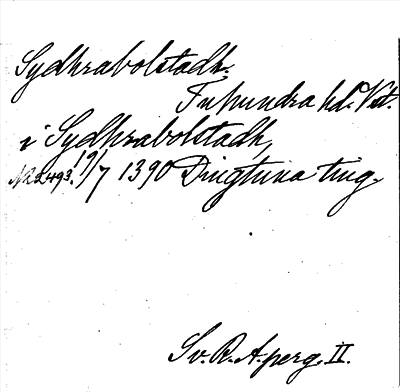 Sydhrabolstadh.
Tuhundra hd. Vst.
i Sydhrabolstadh,
N:o 2493. 19/7 1390 Dingtuna ting.
Sv. R. A. perg. II.